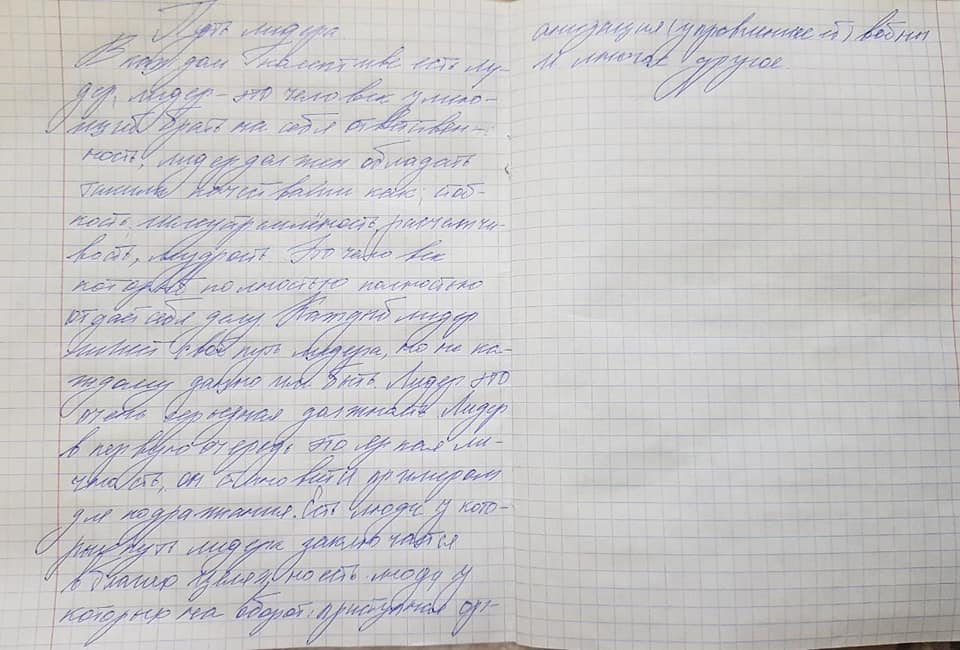 Путь лидера
В каждом коллективе есть ли-
дер, лидер - это человек умею-
щий брать на себя ответствен-
ность, лидер должен обладать
такими качествами как: стой-
кость, целеустремлёность, расчетли-
вость, мудрость. Это человек
который полностью полностью
отдаёт себя делу. Каждый лидер
имеет свой путь лидера, но не ка-
ждому данно им быть. Лидер это
очень серьезная должность. Лидер
в первую очередь это яркая ли-
чность, он становится примером
для подражания. Есть люди у кото-
рых путь лидера заключается
в благих целях, но есть люди у
которых на оборот: приступная орг-
анизация (управление ей) войны
и многое другое